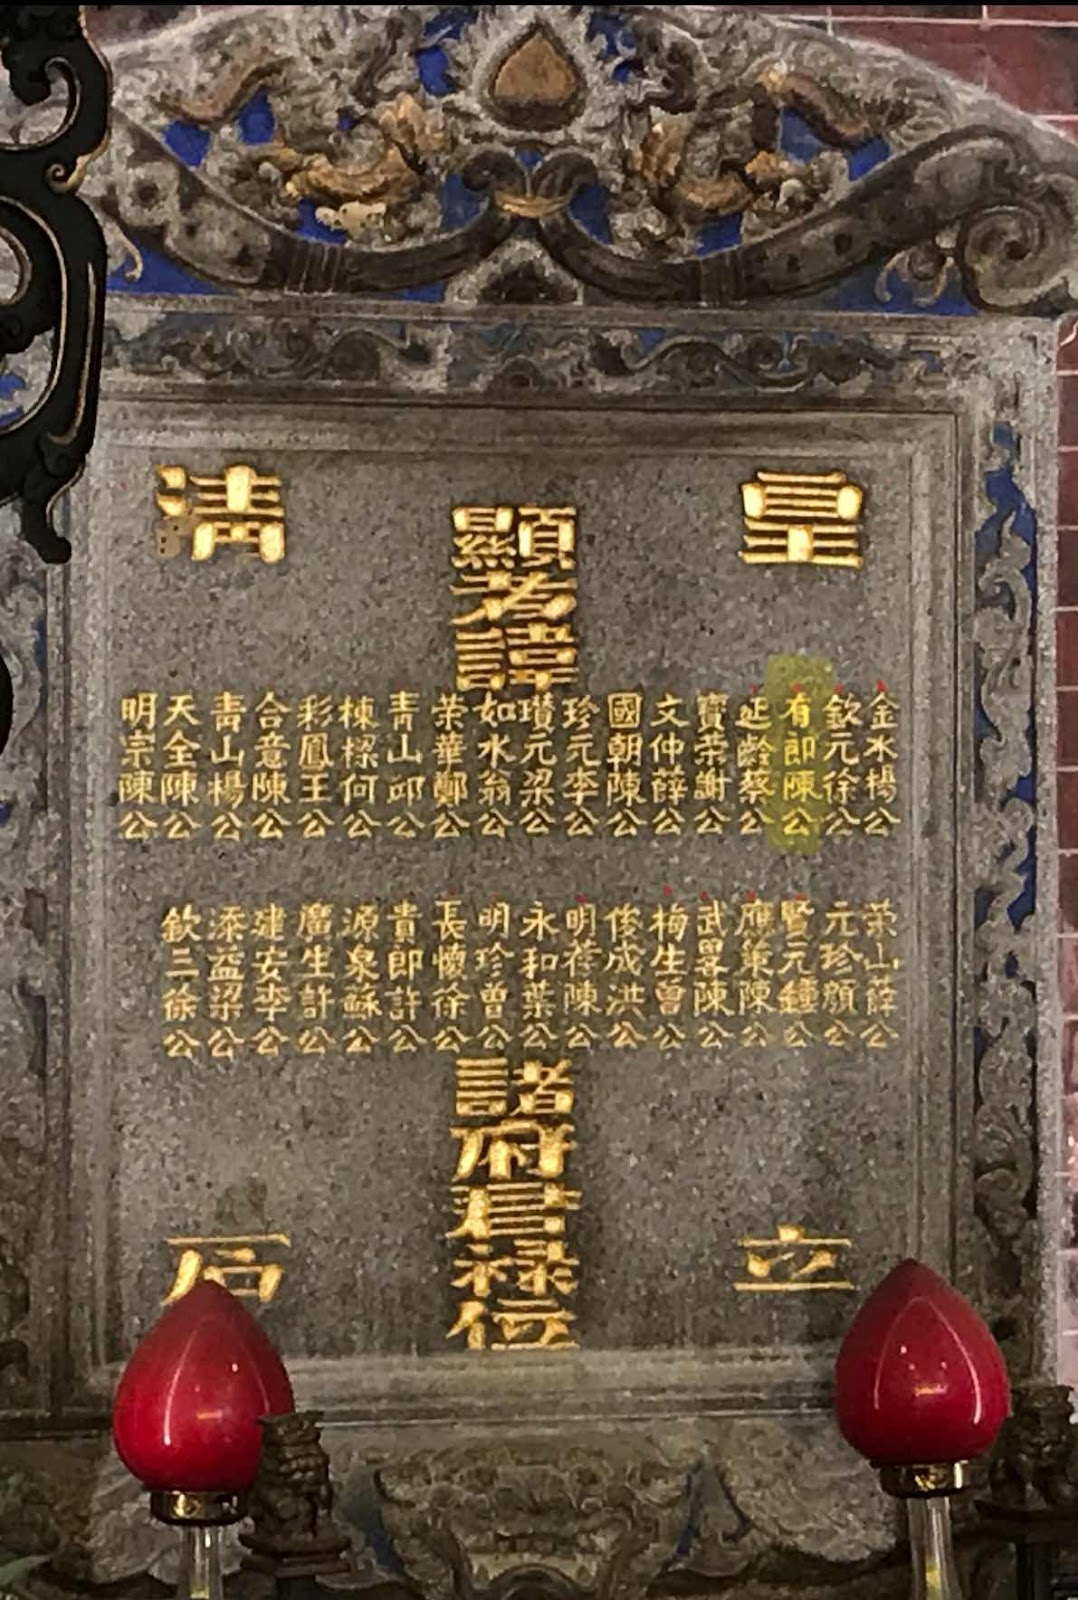 皇清
顯考諱
金水楊公
欽元徐公
有郎陳公
延齡蔡公
寶榮謝公
文仲薛公
國朝陳公
珍元李公
瓚元梁公
如水翁公
荣華鄭公
青山邱公
棟樑何公
彩鳳王公
合意陳公
青山楊公
天全陳公
明宗陳公
荣山薛公
元珍顏公
賢元鍾公
應策陳公
武畧陳公
梅生曾公
俊成洪公
明蒼陳公
永和葉公
明珍曾公
長懷徐公
貴郎許公
源泉蘇公
廣生許公
建安李公
添益梁公
欽三徐公
諸府君祿位
立石